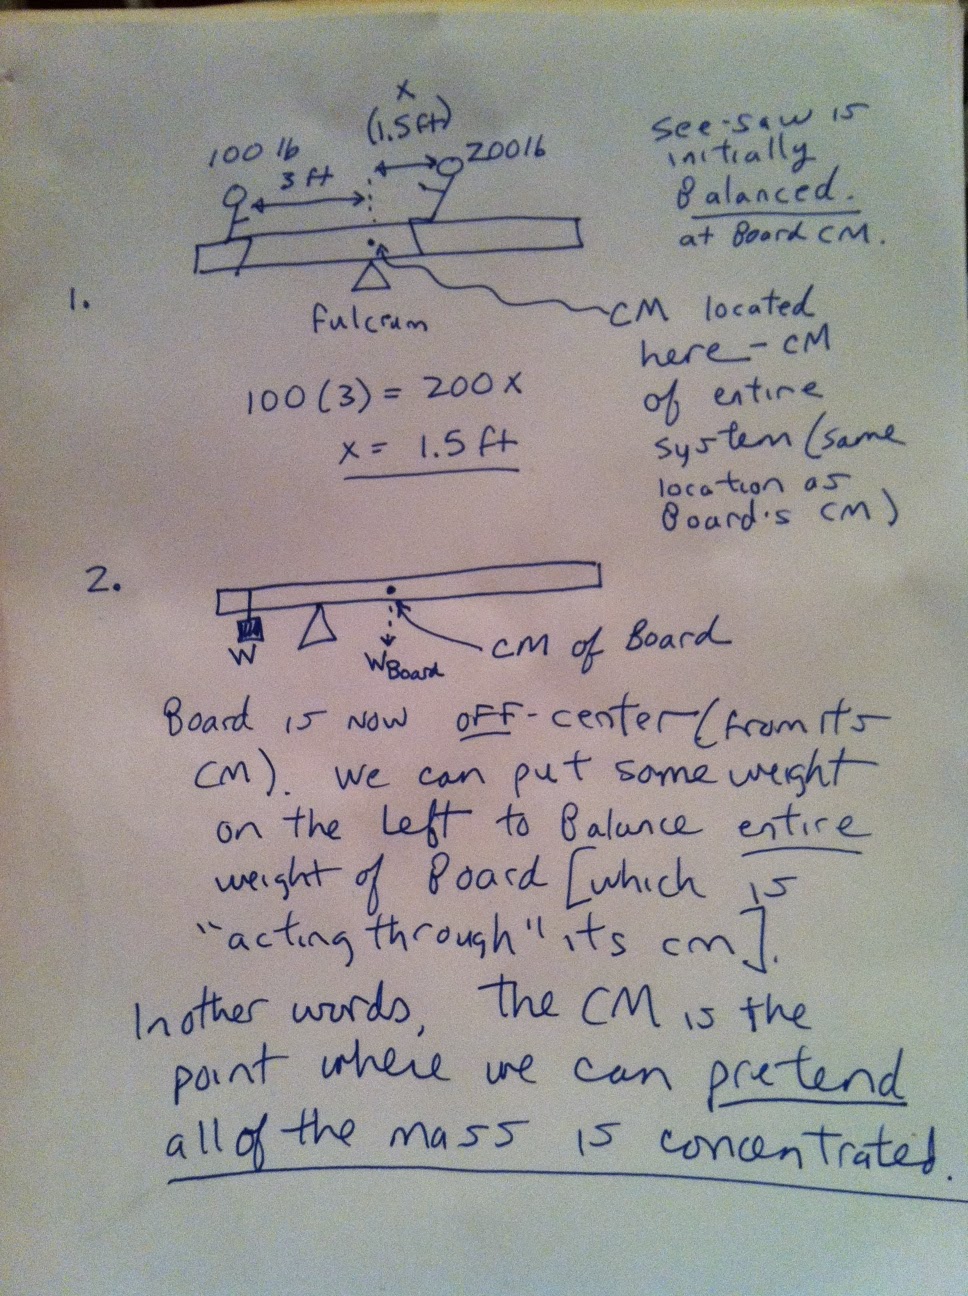 x
(1.5 ft)
100 lb
3 ft
200 lb
see-saw is
initially
Balanced.
at Board CM.
1.
fulcrum
CM located
here - CM
of entire
system (same
location as
Board's CM)
100 (3) = 200 x
x = 1.5 ft
2.
W
WBoard
CM of Board
Board is now off-center (from its
CM). We can put some weight
on the left to Balance entire
weight of Board [which is
"acting through" its cm].
In other words, the CM is the
point where we can pretend
all of the mass is concentrated.